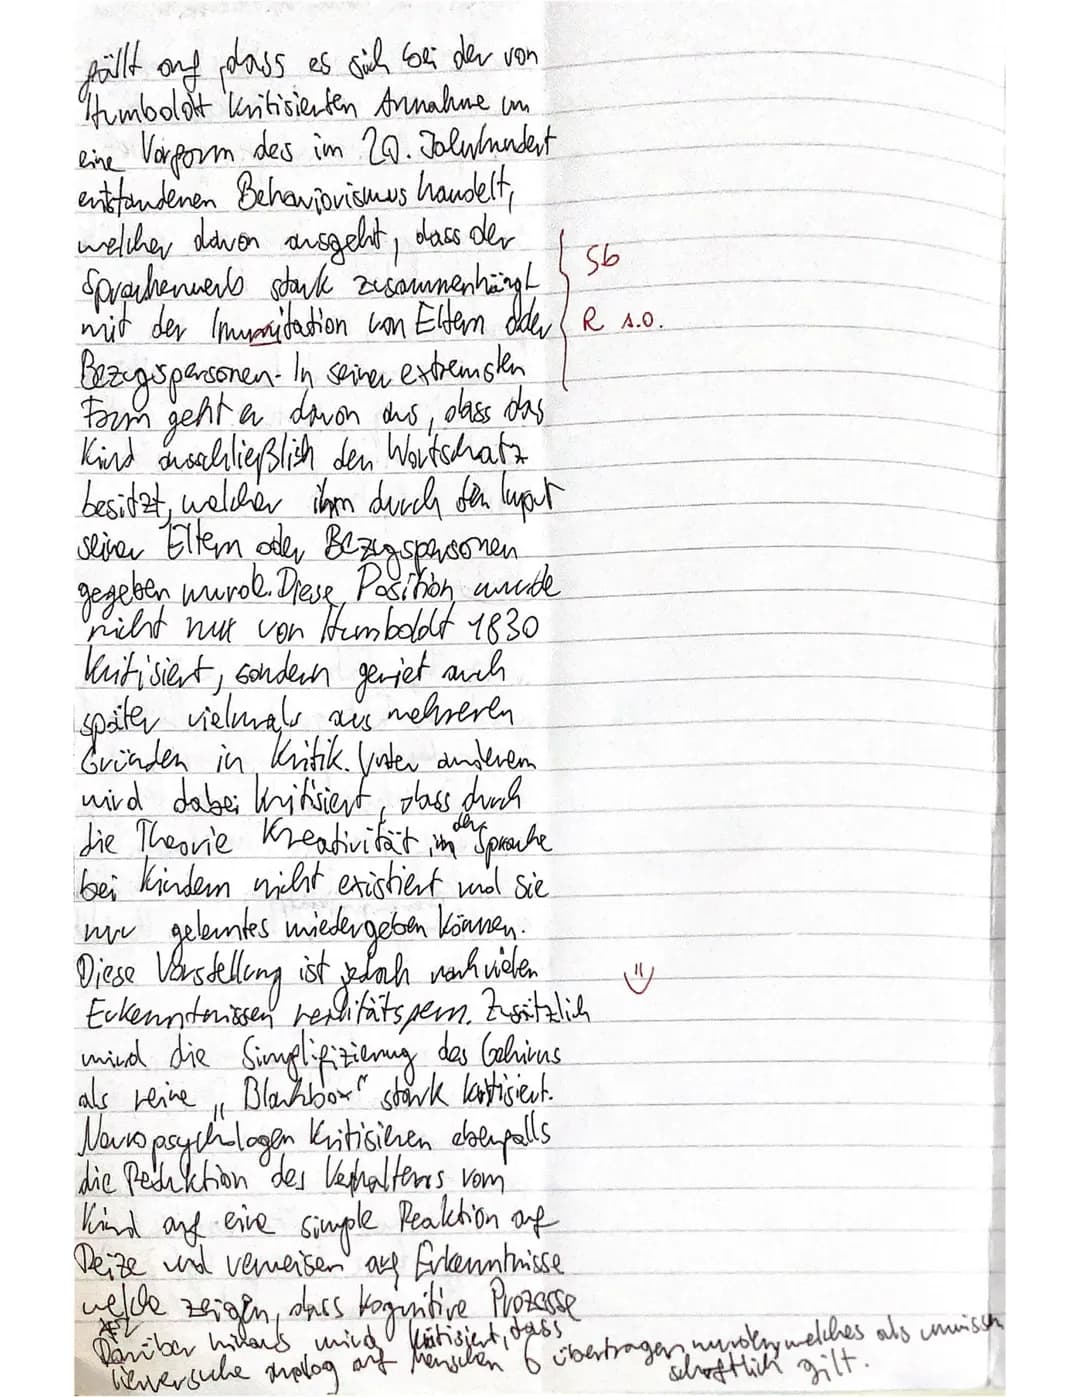 fällt auf, dass es sich bei der von
Humboldt kritisierten Annahme um
eine Vorform des im 20. Jahrhundert
entstandenen Behaviorismus handelt,
welcher davon ausgeht, dass der
Spracherwerb stark zusammenhängt } Sb
mit der Immitation von Eltern oder R s.o.
Bezugspersonen. In seiner extremsten
Form geht er davon aus, dass das
Kind ausschließlich den Wortschatz
besitzt, welcher ihm durch den Input
seiner Eltern oder Bezugspersonen
gegeben wurde. Diese Position wurde
nicht nur von Humboldt 1830
kritisiert, sondern geriet auch
später vielmals aus mehreren
Gründen in Kritik. Unter anderem
wird dabei kritisiert, dass durch
die Theorie Kreativität in der Sprache
bei Kindern nicht existiert und sie
nur gelerntes wiedergeben können.
Diese Vorstellung ist jedoch nach vielen
Erkenntnissen realitätsfern. Zusätzlich
wird die Simplifizierung des Gehirns
als reine „Blackbox“ stark kritisiert.
Neuropsychologen kritisieren ebenfalls
die Reduktion des Verhaltens vom
Kind auf eine simple Reaktion auf
Reize und verweisen auf Erkenntnisse
welche zeigen, dass kognitive Prozesse
*2
Darüber hinaus wird kritisiert, dass
Tierversuche analog auf Menschen übertragen wurden, welches als unwissen
schaftlich gilt.